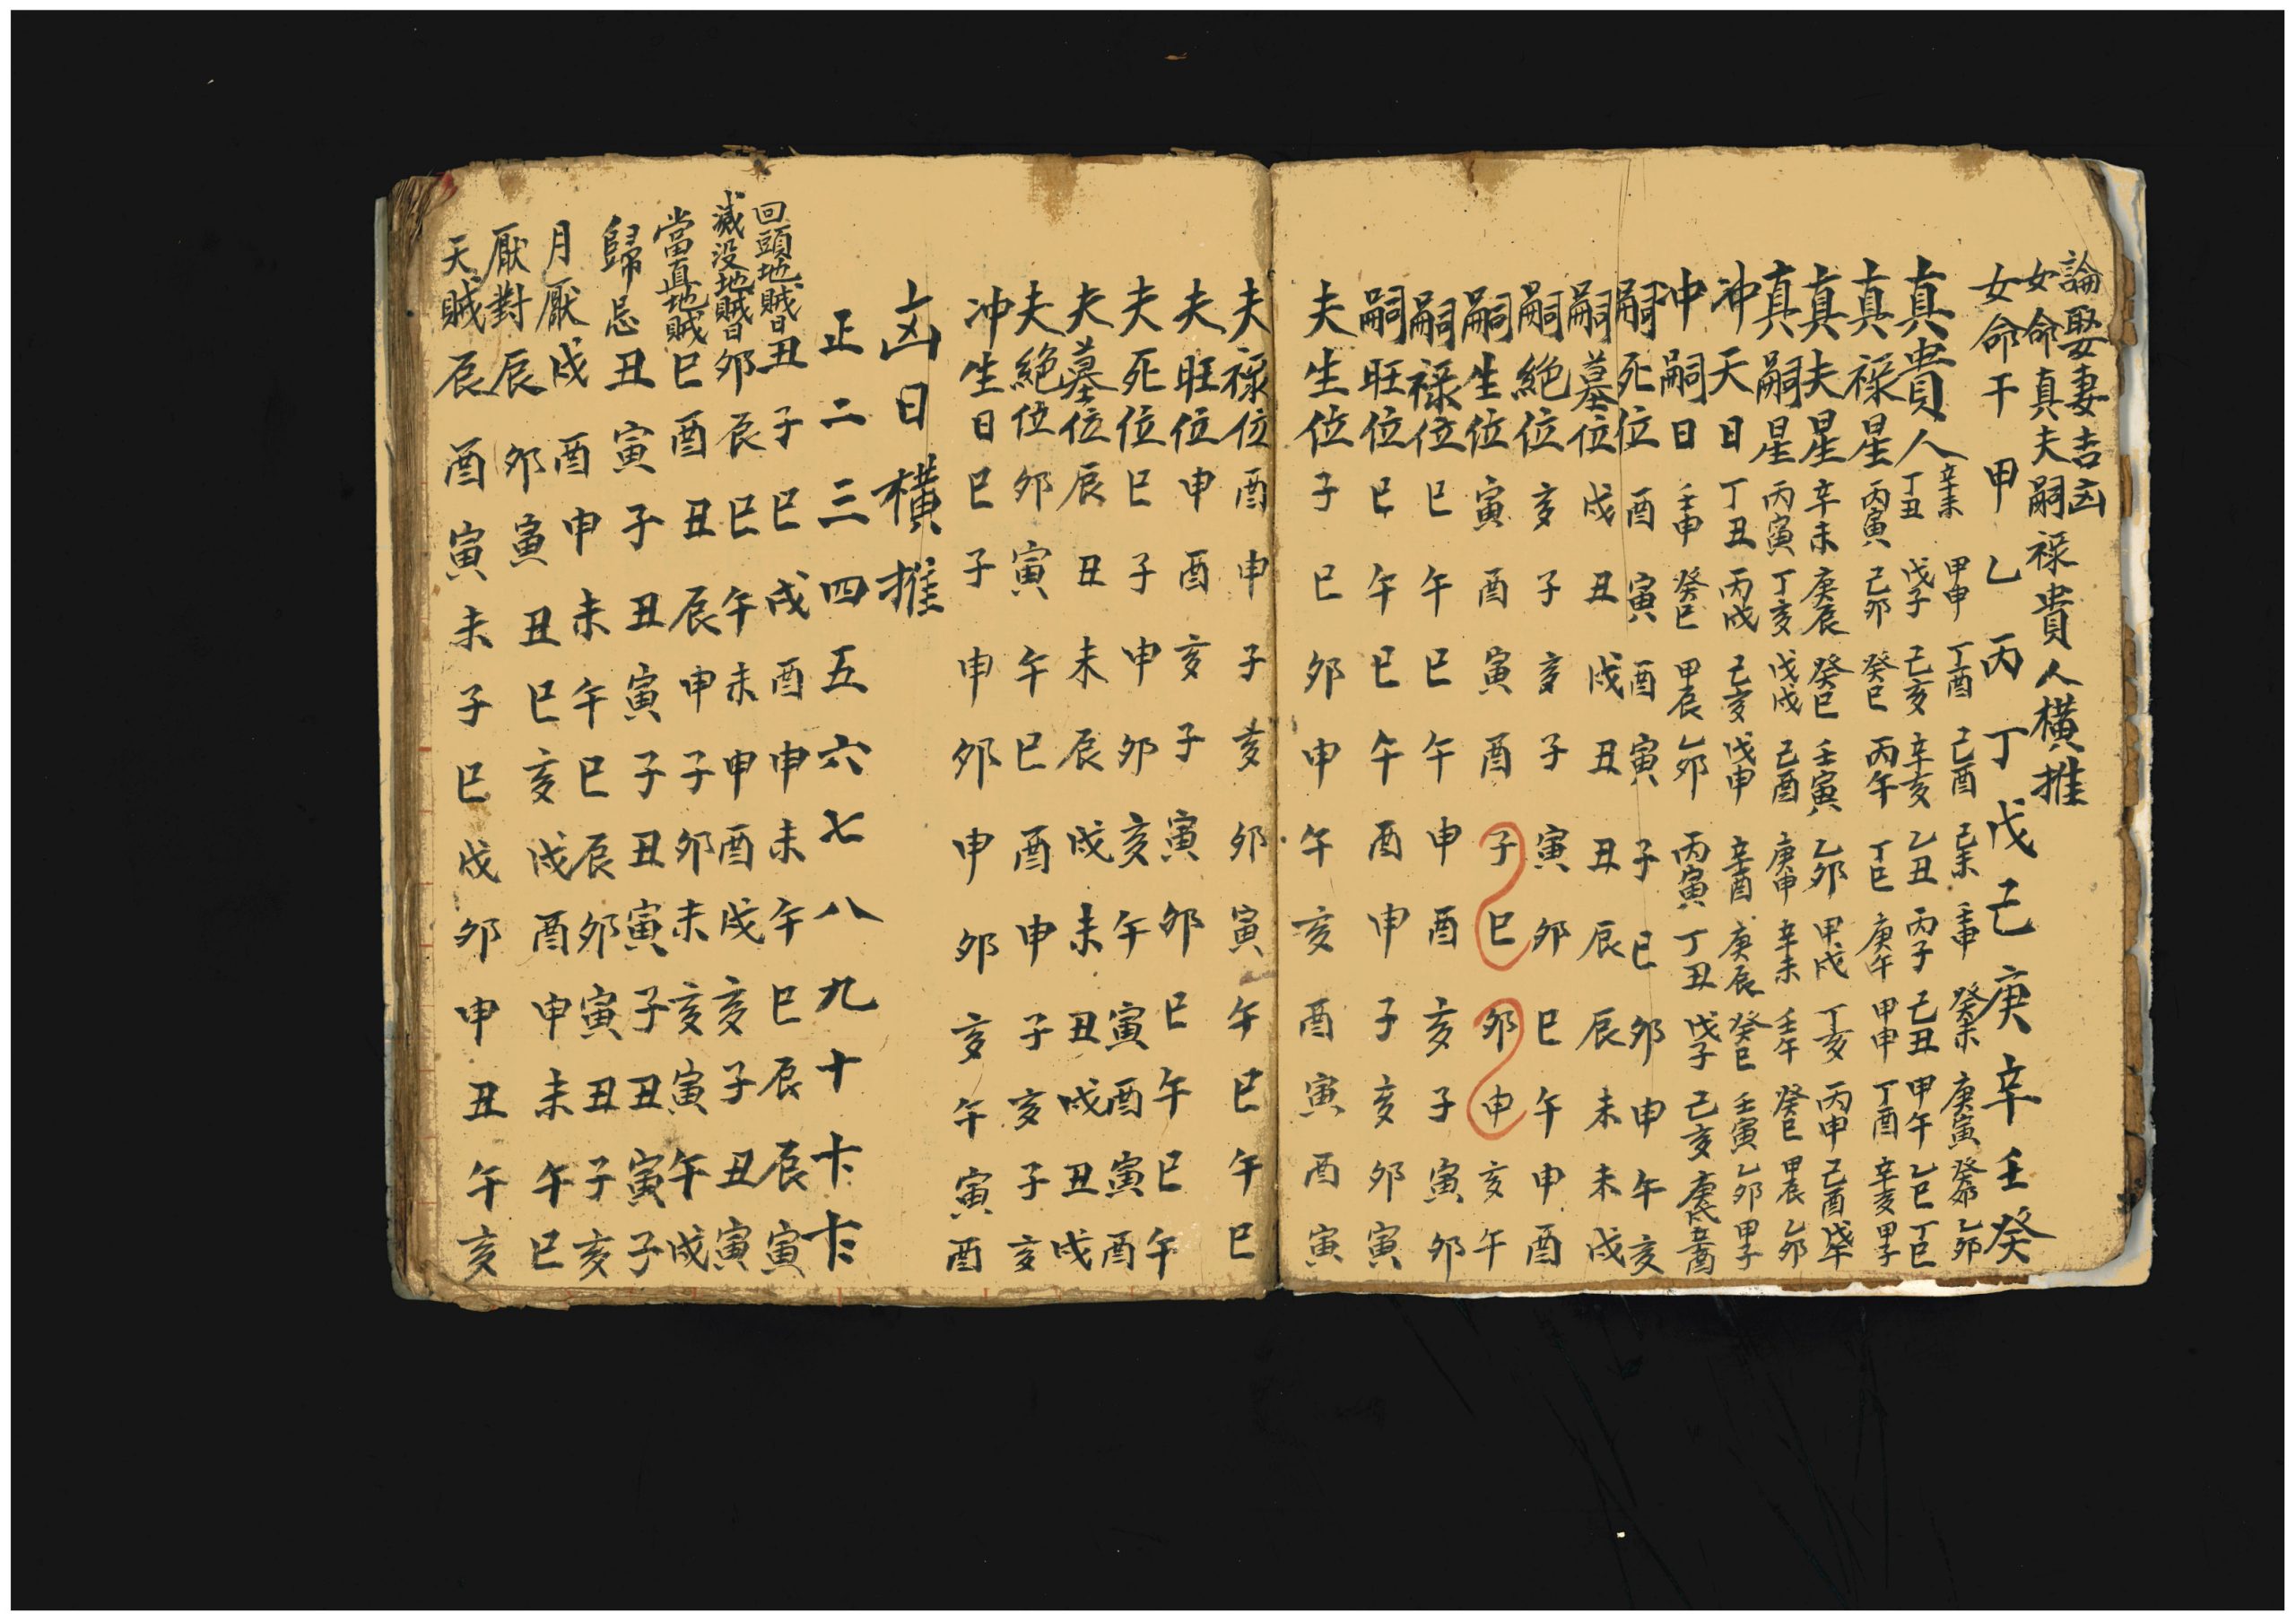 論娶妻吉凶
女命真夫嗣禄貴人横推
女命干甲乙丙丁戊己庚辛壬癸
真貴人
辛未甲申丁酉己酉己未壬申癸未庚寅癸卯乙卯
丁丑戊子己亥辛亥乙丑丙子己丑甲午乙巳丁巳
真禄星丙寅己卯癸巳丙午丁巳庚午甲申丁酉辛亥甲子
真夫星辛未庚辰癸巳壬寅乙卯甲戌丁亥丙申己酉戊午
真嗣星丙寅丁亥戊戌己酉庚申辛未壬午癸巳甲辰乙卯
冲天日丁丑丙戌己亥戊申辛酉庚辰癸巳壬寅乙卯甲子
冲嗣日壬申癸巳甲辰乙卯丙寅丁丑戊子己亥庚戌辛酉
嗣死位酉寅酉寅子巳卯申午亥
嗣墓位戌丑戌丑丑辰辰未未戌
嗣絶位亥子亥子寅卯巳午申酉
嗣生位寅酉寅酉子巳卯申亥午
嗣禄位巳午巳午申酉亥子寅卯
嗣旺位巳午巳午酉申子亥卯寅
夫生位子巳卯申午亥酉寅酉寅
夫禄位酉申子亥卯寅午巳午巳
夫旺位申酉亥子寅卯巳午巳午
夫死位巳子申卯亥午寅酉寅酉
夫墓位辰丑未辰戌未丑戌丑戌
夫絶位卯寅午巳酉申子亥子亥
冲生日巳子申卯申卯亥午寅酉
凶日横推
正二三四五六七八九十十一十二
回頭地賊日丑子巳戌酉申未午巳辰辰寅
滅没地賊日卯辰巳午未申酉戌亥子丑寅
當直地賊巳酉丑辰申子卯未亥寅午戌
歸忌丑寅子丑寅子丑寅子丑寅子
月厭戌酉申未午巳辰卯寅丑子亥
厭對辰卯寅丑巳亥戌酉申未午巳
天賊辰酉寅未子巳戌卯申丑午亥